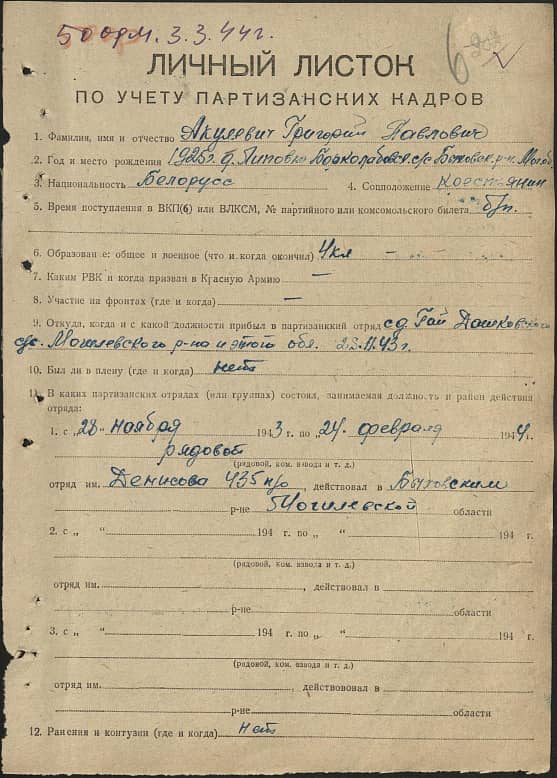 50 арм. 3.3.44 г.
6
ЛИЧНЫЙ ЛИСТОК
ПО УЧЕТУ ПАРТИЗАНСКИХ КАДРОВ
1. Фамилия, имя и отчество Акулевич Григорий Павлович
2. Год и место рождения 1925 г. д. Липовка Борколабовск. с/с Быховск. р-н Могоб.
3. Национальность Белорусс 4. Соцположение Крестьянин
5. Время поступления в ВКП(б) или ВЛКСМ, № партийного или комсомольского билета б/п.
6. Образование: общее и военное (что и когда окончил) 4 кл –
7. Каким РВК и когда призван в Красную Армию –
8. Участие на фронтах (где и когда) –
9. Откуда, когда и с какой должности прибыл в партизанский отряд с д. Гай Дашковского
с/с. Могилевского р-на и этого обл. 28.11.43 г.
10. Был ли в плену (где и когда) нет
11. В каких партизанских отрядах (или группах) состоял, занимаемая должность и район действия
отряда:
1. с „28" ноября 1943 г. по „24" февраля 1944 г.
рядовой
(рядовой, ком. взвода и т. д.)
отряд им. Денисова 435 п/о, действовал в Быховским
р-не Могилевской области
2. с „ " 194 г. по „ " 194 г.
(рядовой, ком. взвода и т. д.)
отряд им. , действовал в
р-не области
3. с „ " 194 г. по „ " 194 г.
(рядовой, ком. взвода и т. д.)
отряд им. , действововал в
р-не области
12. Ранения и контузии (где и когда) нет